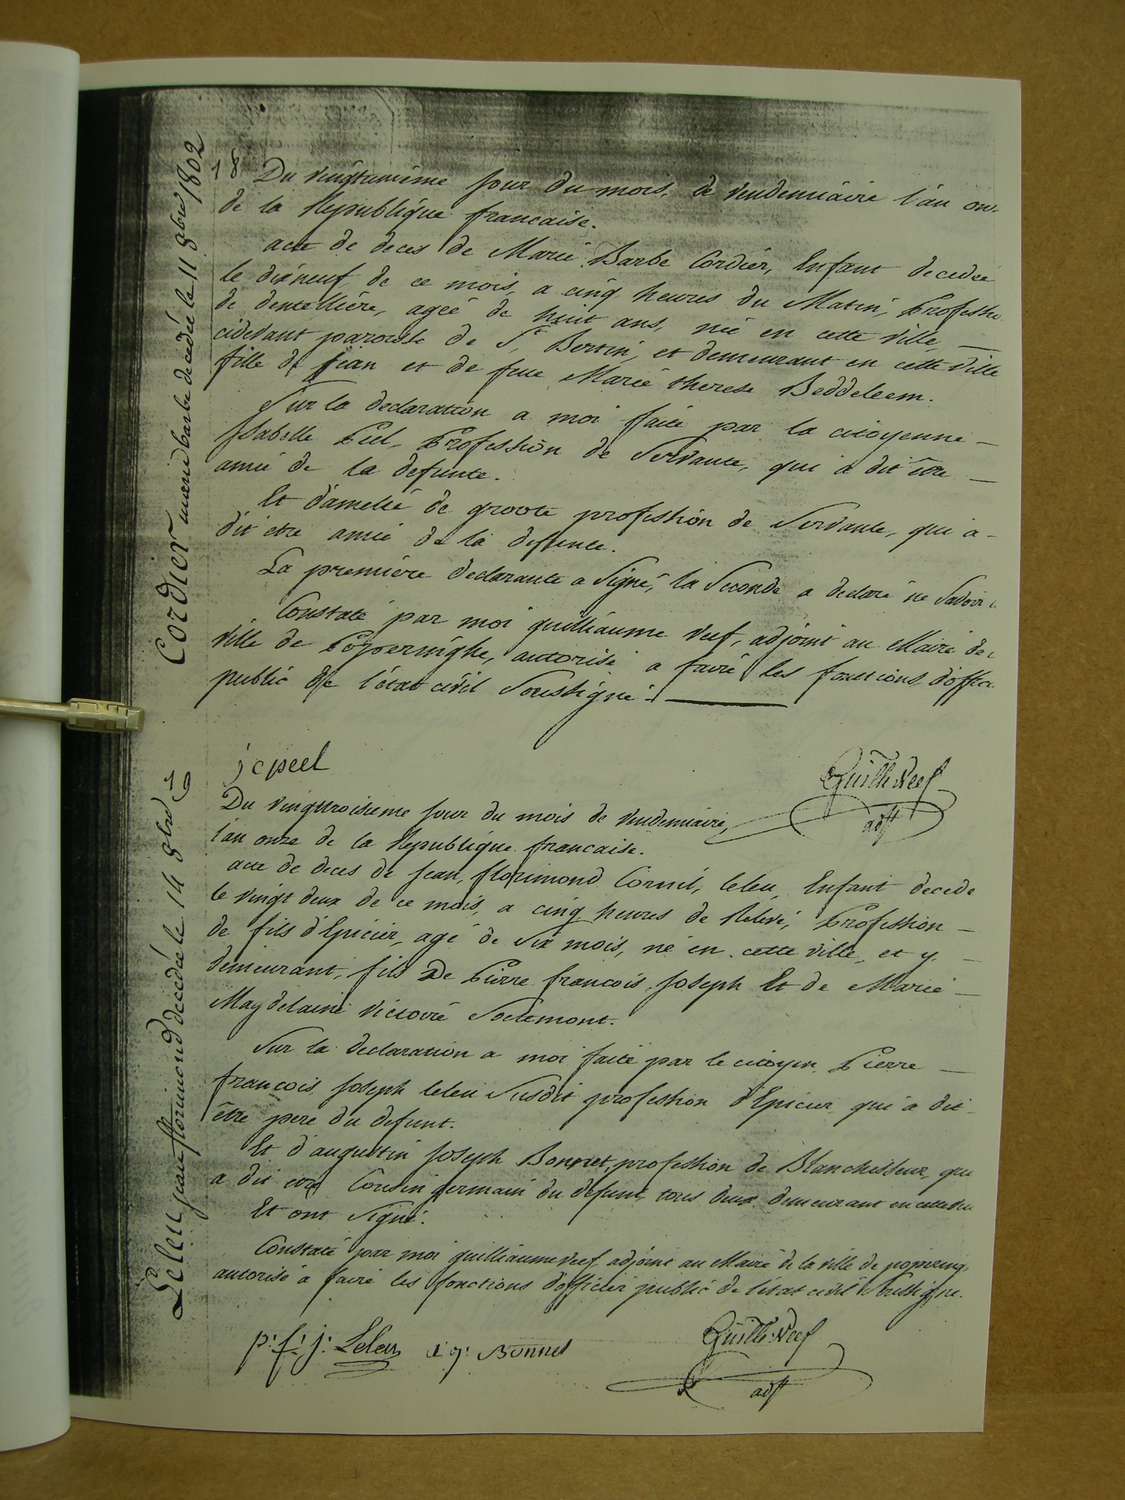 Cordier marie barbe decedée le 11 8bre 1802
18
Du vingtunième jour du mois de vendemiaire l'an on
de la Republique francaise.
acte de deces de Marie Barbe Cordier, Enfant decedée
le dixneuf de ce mois, a cinq heures du Matin, Professi
de dentellière, agée de huit ans, née en cette ville —
cidevant paroisse de St Bertin, et demeurant en cette ville
fille de jean et de feue Marie therese Beddeleem.
Sur la declaration a moi faite par la citoyenne —
Isabelle Piel, Profession de Servante, qui a dit être —
amie de la defunte.
Et d'amelie de groote profession de Servante, qui a -
dit etre amie de la defunte.
La première declarante a Signé, la Seconde a declaré ne Savoir
Constaté par moi guilliaume Neef, adjoint au Maire de
ville de Poperinghe, autorisé a faire les fonctions d'offici
public de l'état civil Soussigné. —
j c peel
Guill: Neef
adjt
Leleu jean florimond decedée le 14 8bre
19
Du vingttroisieme jour du mois de vendemiaire,
l'an onze de la Republique francaise.
acte de deces de jean, florimond Cornil, leleu, Enfant decede
le vingt deux de ce mois, a cinq heures de Relevé, Profession —
de fils d'Epicier, agé de Six mois, né en cette ville, et y —
demeurant, fils De Pierre francois Joseph Et de Marie —
Magdelaine Victoire
Sur la declaration a moi faite par le citoyen Pierre —
francois Joseph leleu Susdit profession d'Epicier, qui a dit
être pere du defunt.
Et d'augustin Joseph Bonnet, profession de Blanchisseur, qui
a dit etre Cousin germain du defunt, tous deux demeurant en cette
Et ont Signé.
Constaté par moi guilliaume Neef, adjoint au Maire de la ville de popering
autorisé a faire les fonctions d'officier public de l'état civil Soussigné.
p: f: j: Leleu
Bonnet
Guill: Neef
adjt